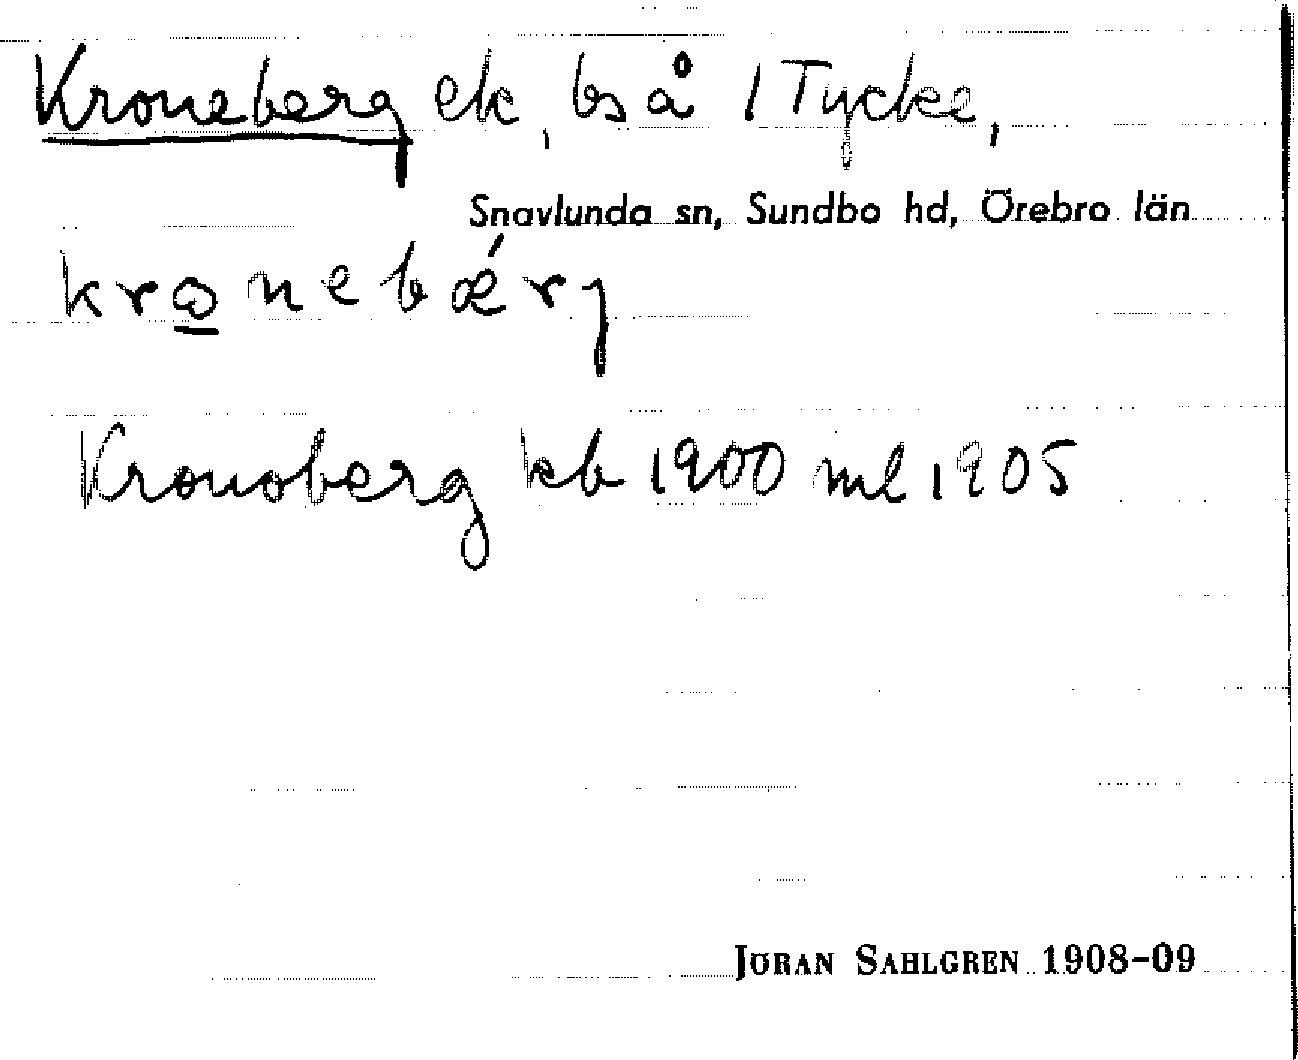 Kroneberg ek, bs å 1 Tycke,
Snavlunda sn, Sundbo hd, Örebro län
kronebǽrj
Kronoberg kb 1900 ml 1905
JÖRAN SAHLGREN 1908-09